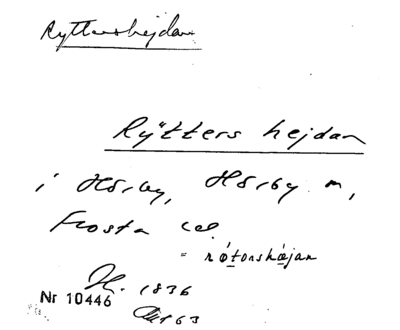 Ryttershejdan
Rÿtters hejdan
i Hörby, Hörby sn,
Frosta
= rø̀tonshæ̀jan
1836
Nr 10446
63